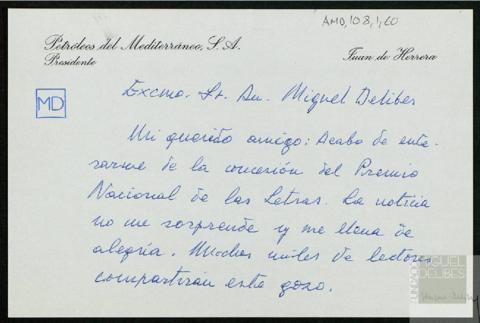 AMD,108,1,60
Petróleos del Mediterráneo, S.A.
Presidente
Juan de Herrera
MD
Excmo. Sr. Dn. Miguel Delibes
Mi querido amigo: Acabo de ente-
rarme de la concesión del Premio
Nacional de las Letras. La noticia
no me sorprende y me llena de
alegría. Muchos miles de lectores
compartirán este gozo.
FUNDACIÓN
MIGUEL
DELIBES